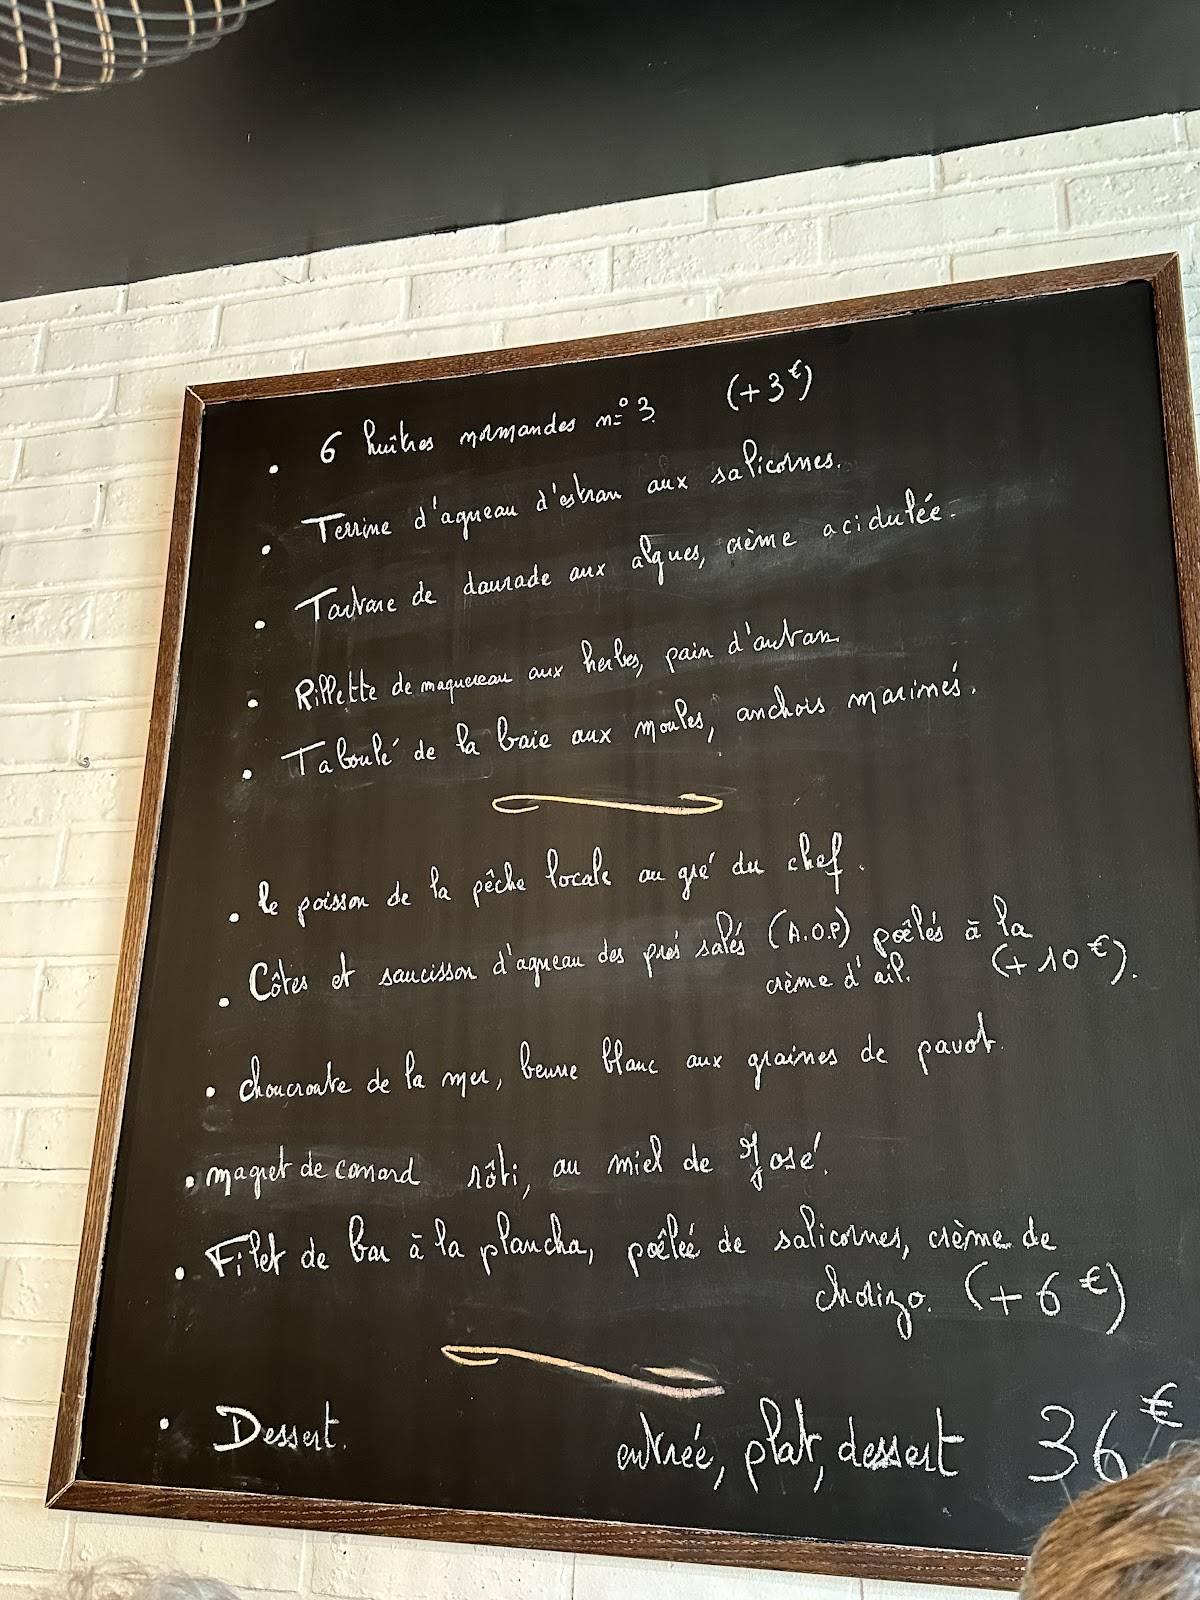 6 huîtres normandes n° 3. (+3€)
Terrine d'agneau d'estran aux salicornes.
Tartare de daurade aux algues, crème acidulée.
Rillette de maquereau aux herbes, pain d'antan
Taboulé de la baie aux moules, anchois marinés.
le poisson de la pêche locale au gré du chef.
Côtes et saucisson d'agneau des prés salés (A.O.P) poêlés à la
crème d'ail. (+10€).
choucroute de la mer, beurre blanc aux graines de pavot.
magret de canard rôti, au miel de José.
Filet de bar à la plancha, poêlée de salicornes, crème de
chorizo. (+6€)
Dessert. entrée, plat, dessert 36€